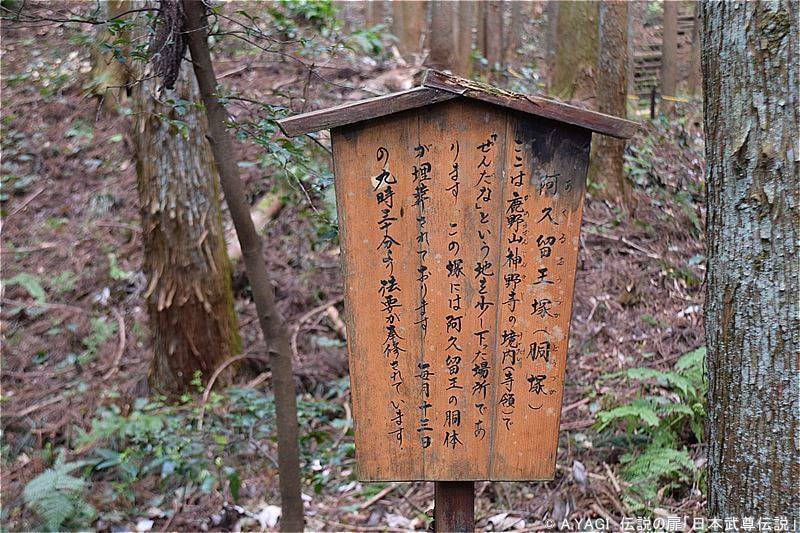 阿久留王塚(胴塚)
あくるおうづか どうづか
ここは鹿野山神野寺の境内(寺領)で
「ぜんたな」という地を少し下った場所であ
ります。この塚には阿久留王の胴体
が埋葬されております。毎月十三日
の九時三十分より法要が奉修されています。
© A.YAGI 伝説の扉「日本武尊伝説」